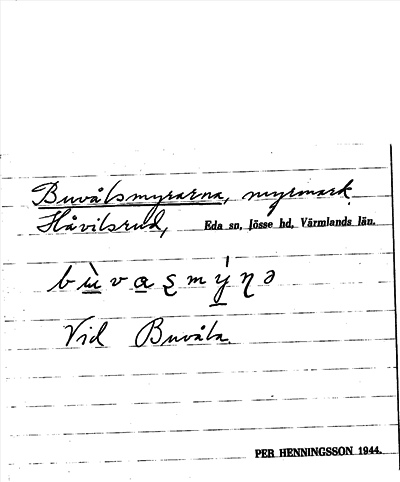 Buvålsmyrarna, myrmark.
Håvilsrud, Eda sn, Jösse hd, Värmlands län.
Vid Buvåla
PER HENNINGSSON 1944.